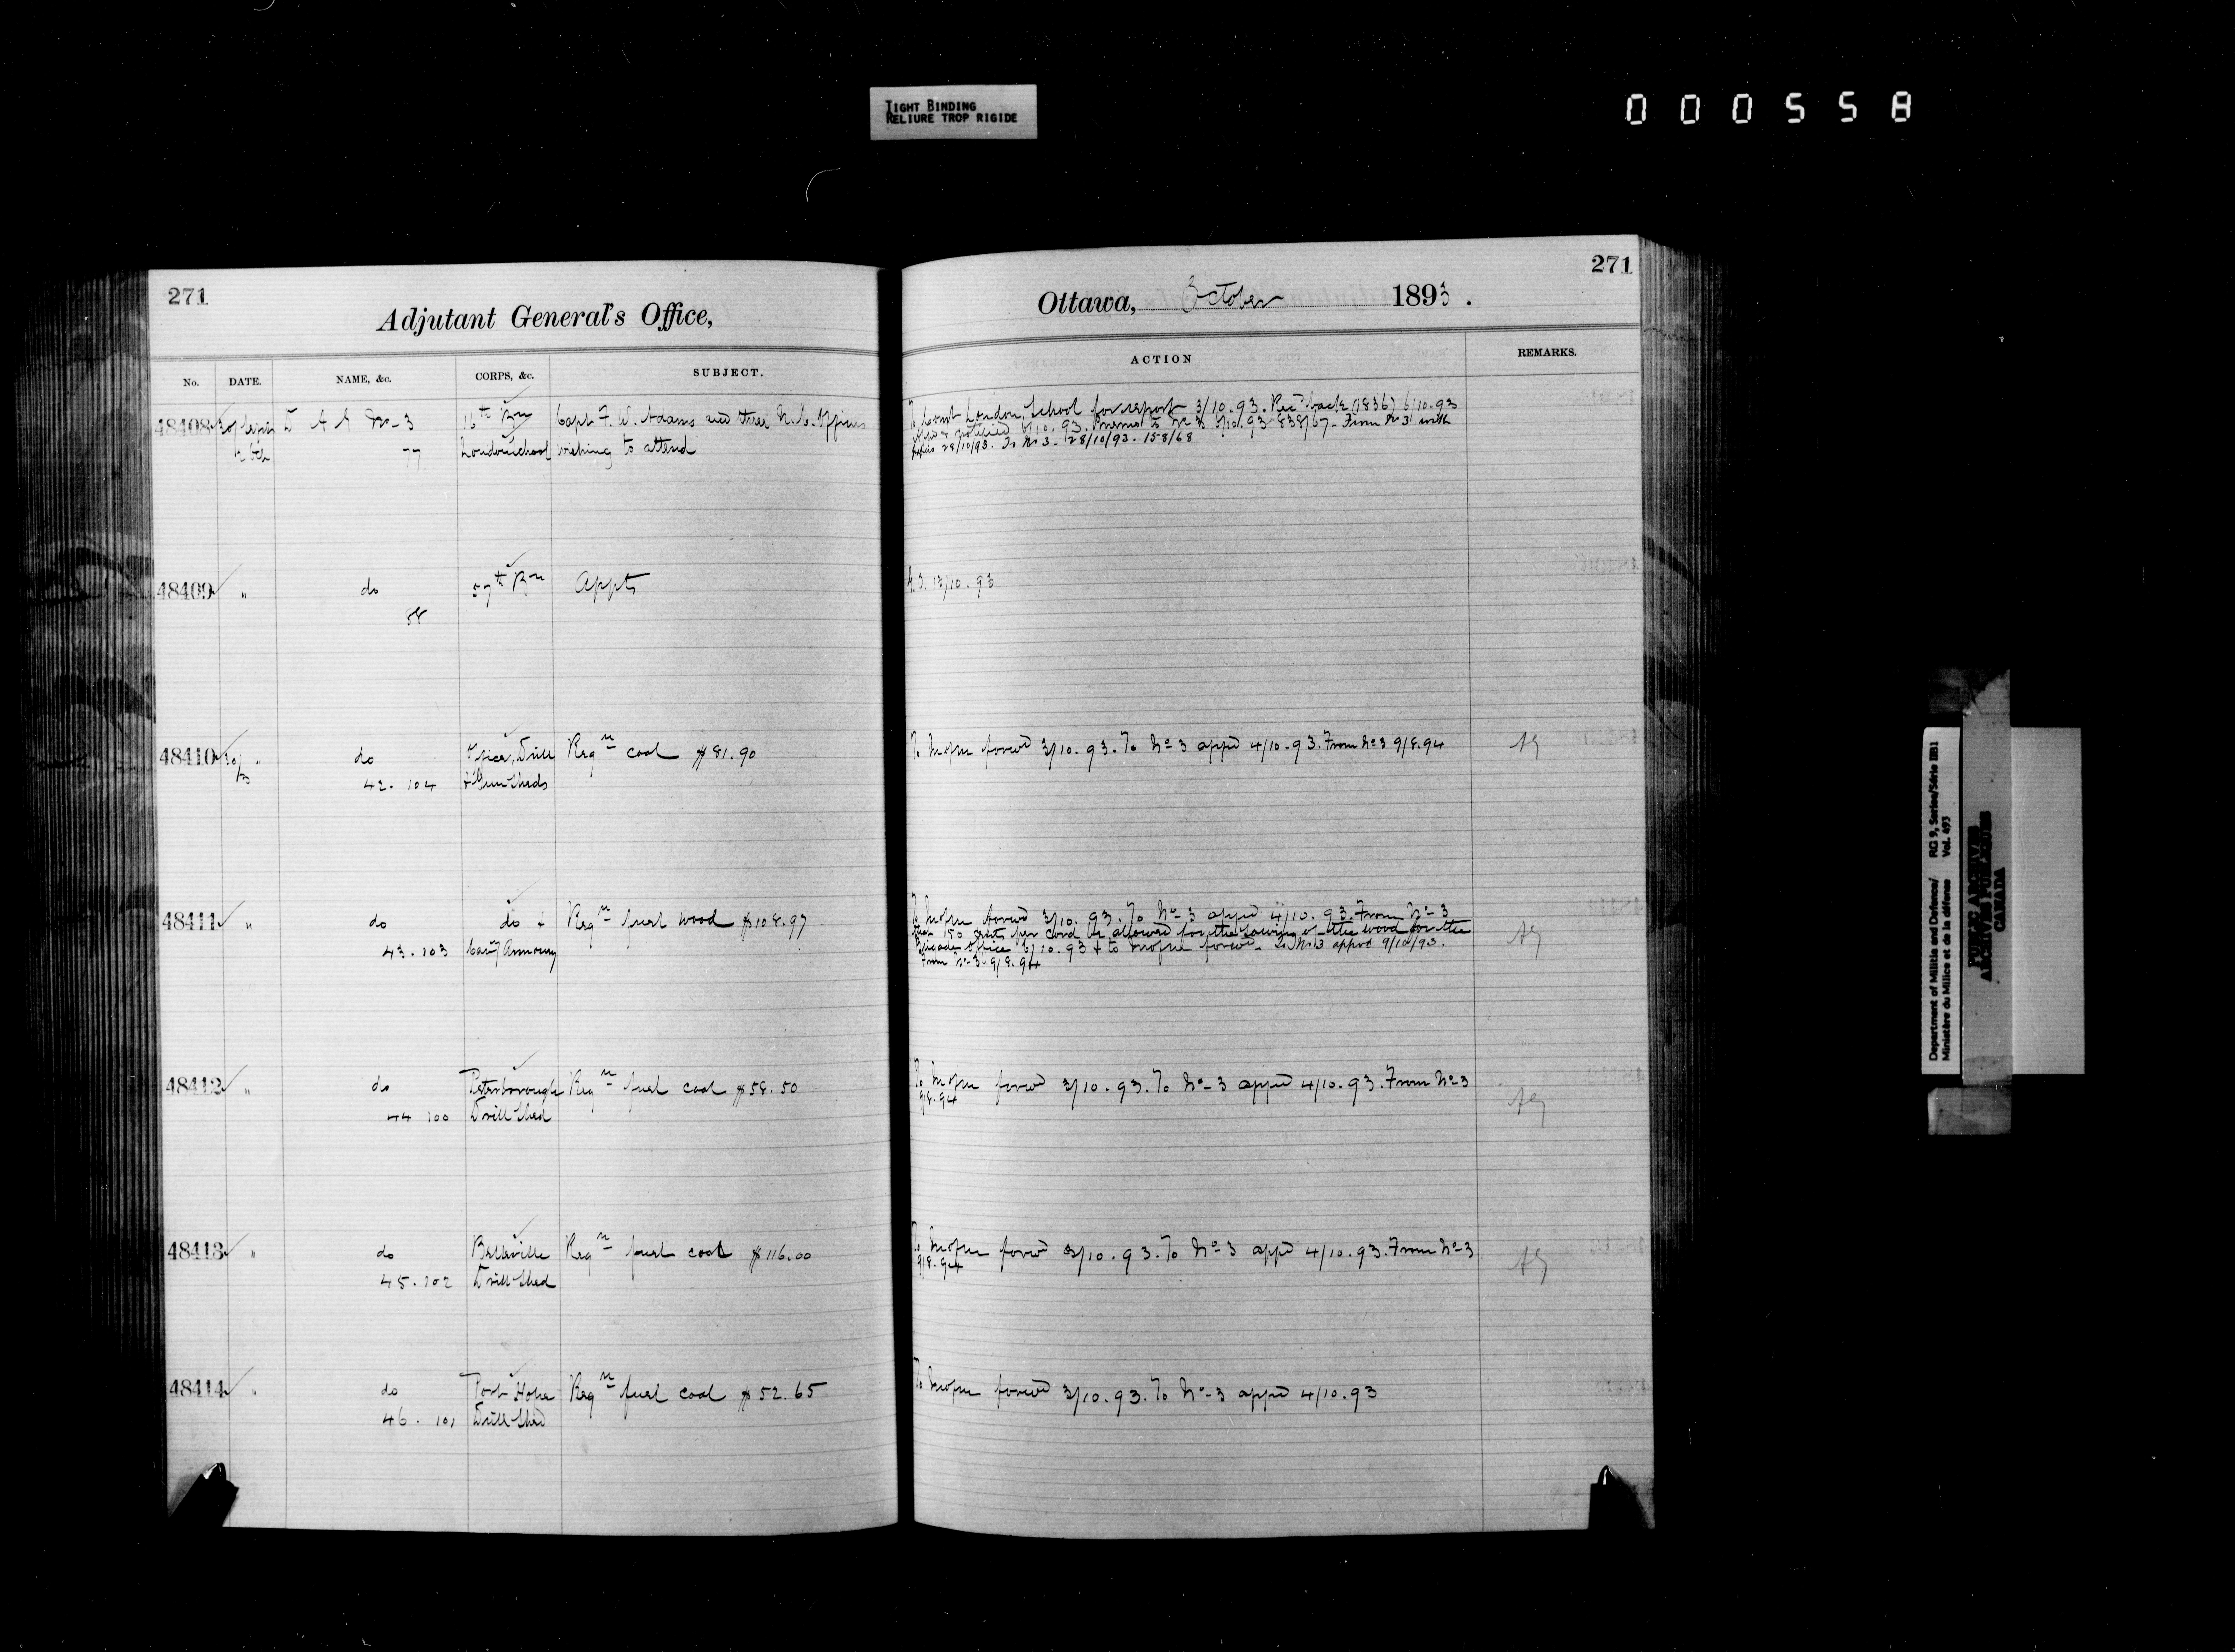 TIGHT BINDING
RELIURE TROP RIGIDE
000558
271
Adjutant General's Office,
No. DATE. NAME, &c. CORPS, &c. SUBJECT.
48408 D A G No-3 16th Bn Capt F. W. Adams and three N.C. Officers
77 London School wishing to attend
48409 " do 57th Bn Appts
88
48410 " do Office, Drill Reqn coal $81.90
42. 104 + Gun Sheds
48411 " do do + Reqn fuel wood $108.97
43. 103 Cavy Armoury
48412 " do Peterborough Reqn fuel coal $58.50
44 100 Drill Shed
48413 " do Belleville Reqn fuel coal $116.00
45. 102 Drill Shed
48414 " do Port Hope Reqn fuel coal $52.65
46. 101 Drill Shed
271
Ottawa, October 1893.
ACTION REMARKS.
To Comt London School for report 3/10.93. Recd back (1836) 6/10.93
notified 6/10.93. memo to No 3 6/10.93 838/67. From No 3 with
papers 28/10/93. To No 3 - 28/10/93. 158/68
G.O. 13/10.93
forwd 3/10.93. To No-3 appd 4/10.93. From No 3 9/8.94
forwd 3/10.93. To No-3 appd 4/10.93. From No-3
that 50 cents per cord be allowed for the sawing of the wood for the
Brigade Office 6/10.93 + to forwd. To No 3 appd 9/10/93.
From No-3 9/8.94
forwd 3/10.93. To No-3 appd 4/10.93. From No-3
9/8.94
forwd 3/10.93. To No-3 appd 4/10.93. From No-3
9/8.94
forwd 3/10.93. To No-3 appd 4/10.93
Department of Militia and Defence/ RG 9, Series/Série IIB1
Ministère du Milice et de la défense Vol. 493
PUBLIC ARCHIVES
ARCHIVES PUBLIQUES
CANADA